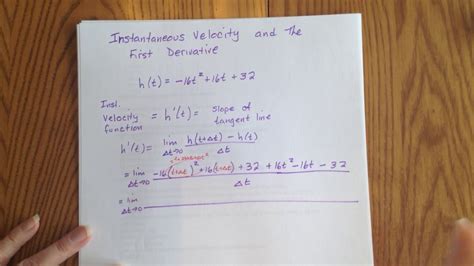 Instantaneous Velocity and The
First Derivative
h(t) = -16t² + 16t + 32
Inst.
Velocity = h'(t) = slope of
function tangent line
h'(t) = lim h(t+Δt) - h(t)
Δt→0 Δt
= lim -16(t+Δt)² + 16(t+Δt) + 32 + 16t² - 16t - 32
Δt→0 Δt
= lim
Δt→0